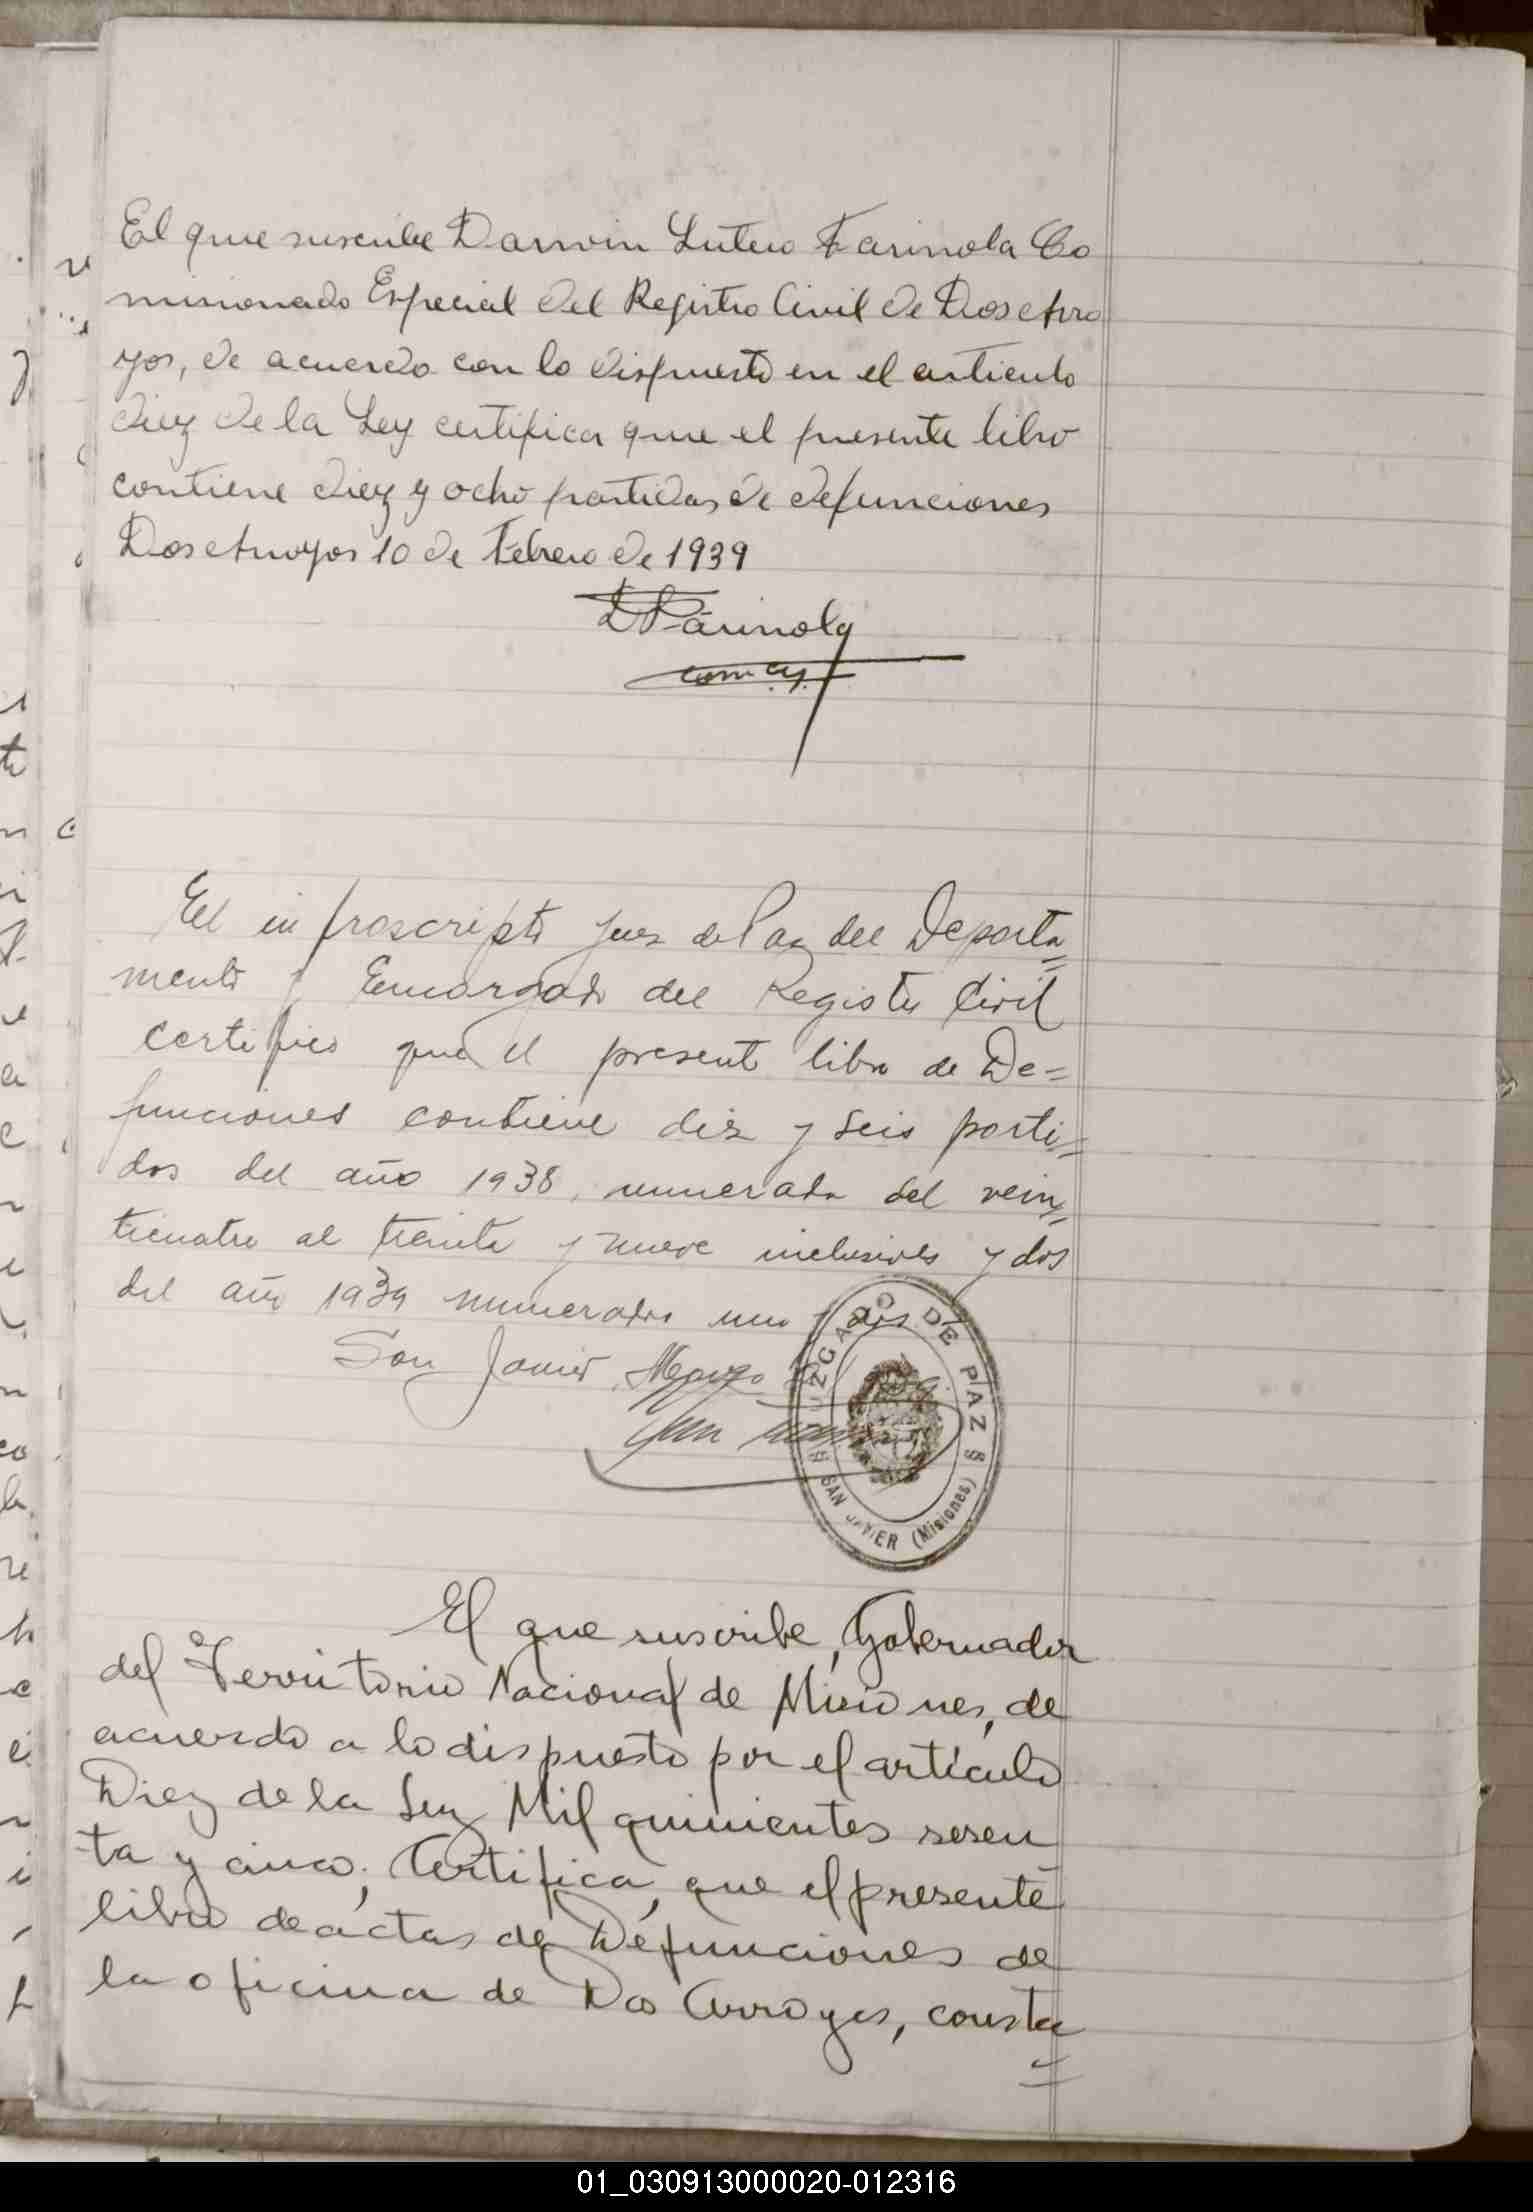 El que suscribe Darwin Lutero Farinola Co
misionado Especial del Registro Civil de Dos Arro
yos, de acuerdo con lo dispuesto en el articulo
diez de la Ley certifica que el presente libro
contiene diez y ocho partidas de defunciones
Dos Arroyos 10 de Febrero de 1939
DFarinola
El infrascripto Juez de Paz del Departa=
mento y Encargado del Registro Civil
certifico que el presente libro de De=
funciones contiene diez y seis parti=
das del año 1938, numerada del vein=
ticuatro al treinta y nueve inclusives y dos
del año 1939 numerados uno y dos
San Javier, Marzo
JUZGADO DE PAZ
SAN JAVIER (Misiones)
El que suscribe, Gobernador
del Territorio Nacional de Misiones, de
acuerdo a lo dispuesto por el artículo
Diez de la Ley Mil quinientos sesen
ta y cinco; Certifica, que el presente
libro de actas de Defunciones de
la oficina de Dos Arroyos, consta
=
01_030913000020-012316